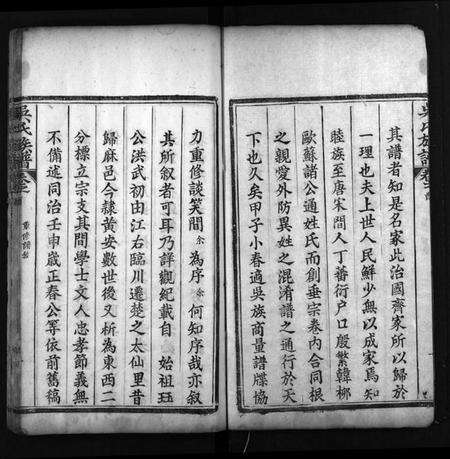 吳氏族譜
其譜者知是名家此治國齊家所以歸於
一理也夫上世人民鮮少無以成家焉知
睦族至唐宋間人丁蕃衍户口殷繁韓柳
歐蘇諸公通姓氏而創垂宗卷內合同根
之親愛外防異姓之混淆譜之通行於天
下也久矣甲子小春適吳族商量譜牒協
力重修談笑間余為序余何知序哉亦叙
其所叙者可耳乃詳觀紀載自 始祖珏
公洪武初由江右臨川遷楚之太仙里昔
歸麻邑今隸黃安數世後又析為東西二
分標立宗支其間學士文人忠孝節義無
不備述同治壬申歲正春公等依前舊稿
吳氏族譜